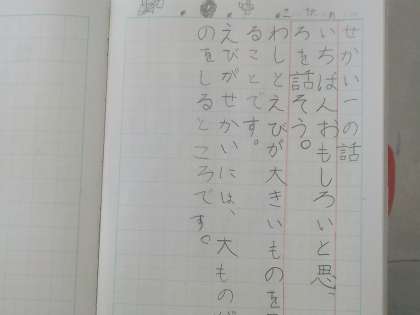 せかい一の話
いちばんおもしろいと思
ろを話そう。
わしとえびが大きいものを
ることです。
えびがせかいには、大もの
のをしるところです。